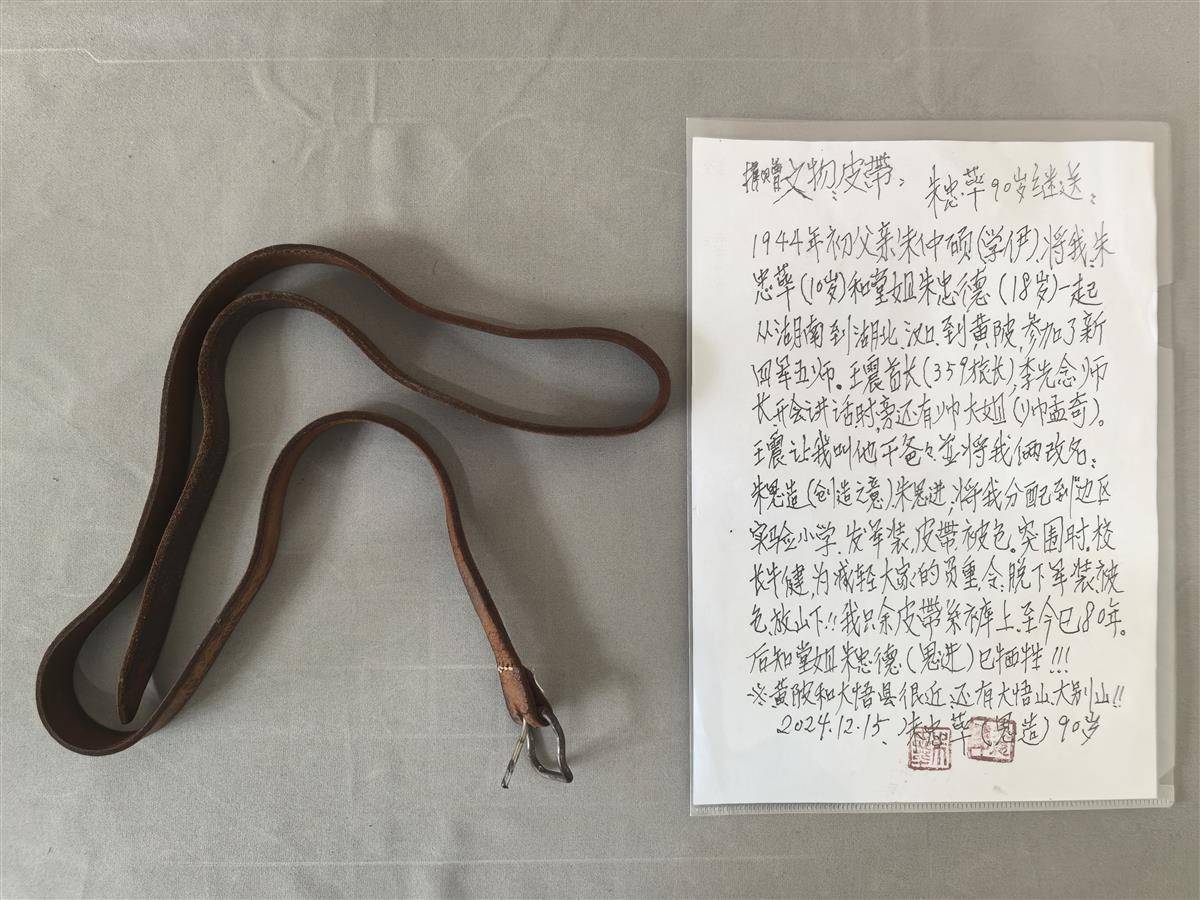 捐赠文物:皮带: 朱忠苹90岁继送:
1944年初父亲朱仲硕(学伊)、将我、朱
忠苹(10岁)和堂姐朱忠德(18岁)一起
从湖南到湖北、汉口、到黄陂,参加了新
四军五师。王震首长(359旅长),李先念师
长开会讲话时,旁还有帅大姐(帅孟奇)。
王震让我叫他干爸々並将我俩改名:
朱思造(创造之意)、朱思进,将我分配到"边区
实验小学、发军装、皮带、被包。突围时,校
长牛健,为减轻大家的负重,令:脱下军装、被
包放山下!!我只余皮带系裤上、至今已80年。
后知堂姐朱忠德(思进)已牺牲!!!
※黄陂和大悟县很近、还有大悟山、大别山!!
2024.12.15、朱忠苹(思造)90岁